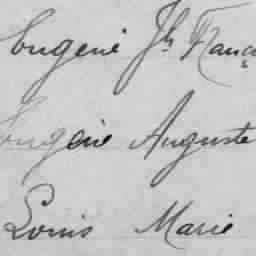 Eugène Jh Franç
Eugène Auguste
Louis Marie